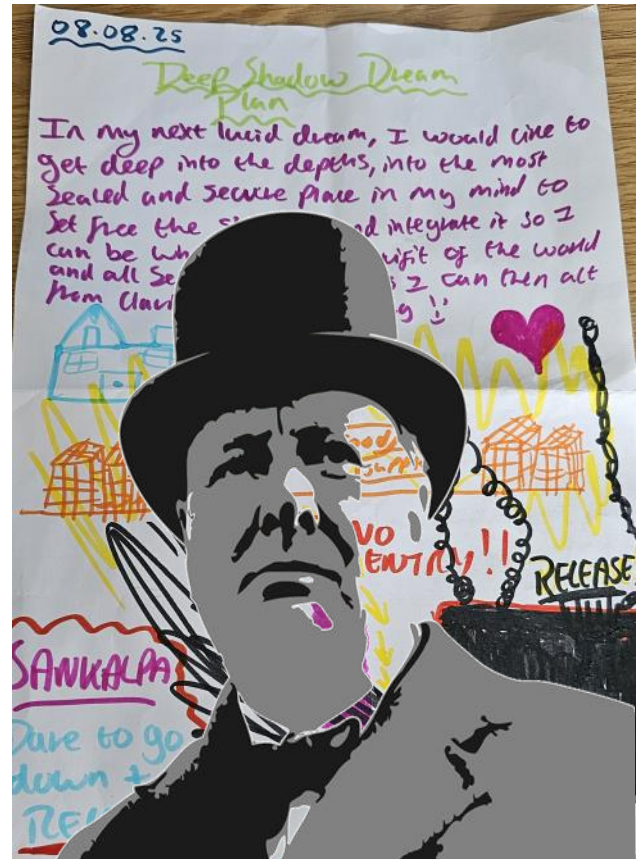 08.08.25
Deep Shadow Dream
Plan
In my next lucid dream, I would like to
get deep into the depths, into the most
sealed and secure place in my mind to
set free the and integrate it so I
can be of the world
and all I can then act
from
NO
ENTRY!!
RELEASE
SANKALPA
Dare to go
down +